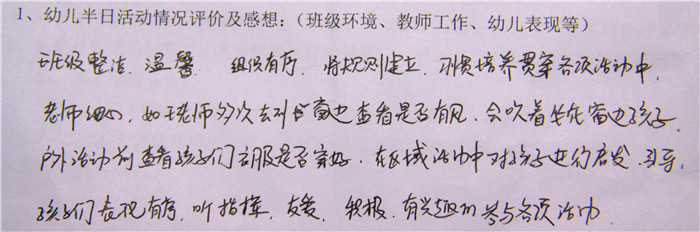 1、幼儿半日活动情况评价及感想：（班级环境、教师工作、幼儿表现等）
班级整洁、温馨、组织有序，将规则建立、习惯培养贯穿各项活动中，
老师细心，如王老师多次去到窗边查看是否有风，会吹着坐在窗边孩子，
户外活动前查看孩子们衣服是否穿好，在区域活动中对孩子进行启发、引导，
孩子们表现有序，听指挥，友爱，积极、有兴趣的参与各项活动